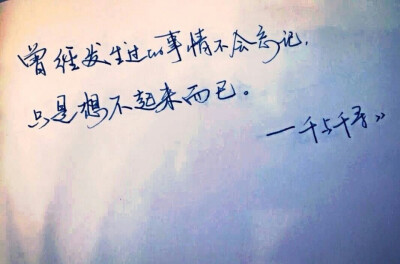 曾经发生过的事情不会忘记，
只是想不起来而已。
—千与千寻》